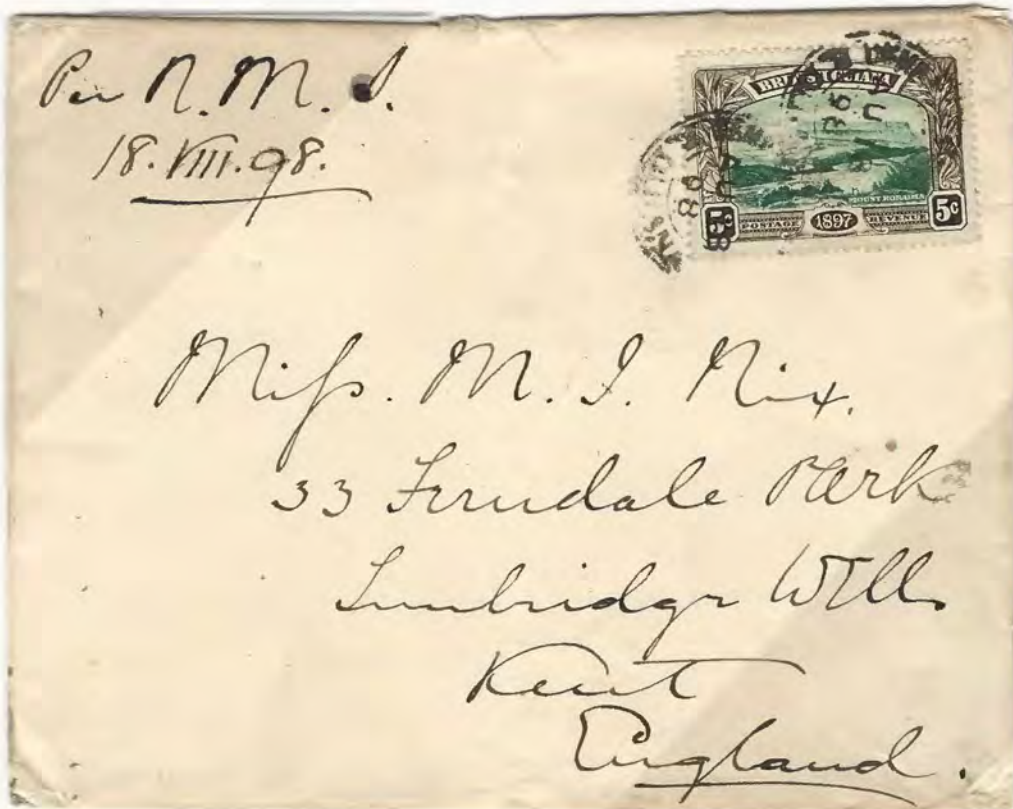 Per R. M. S.
18. VIII. 98.
BRITISH GUIANA
MOUNT RORAIMA
5c POSTAGE 1897 REVENUE 5c
Miss. M. I. Nix.
33 Ferndale Park
Tunbridge Wells
Kent
England.